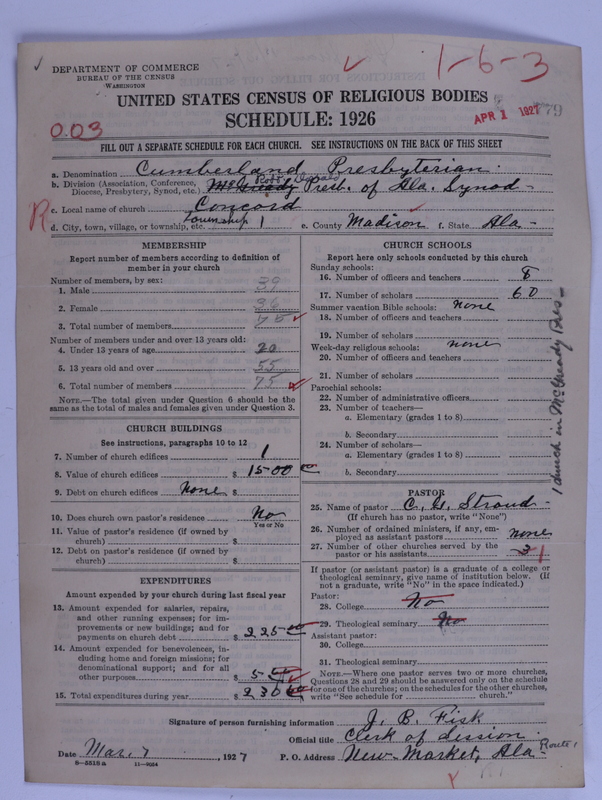 DEPARTMENT OF COMMERCE
BUREAU OF THE CENSUS
WASHINGTON
1-6-3
UNITED STATES CENSUS OF RELIGIOUS BODIES
SCHEDULE: 1926
APR 1 1927
0.03
FILL OUT A SEPARATE SCHEDULE FOR EACH CHURCH. SEE INSTRUCTIONS ON THE BACK OF THIS SHEET
a. Denomination Cumberland Presbyterian
b. Division (Association, Conference, Diocese, Presbytery, Synod, etc.) McGready Presb. of Ala. Synod
R
c. Local name of church Concord
d. City, town, village, or township, etc. township 1 e. County Madison f. State Ala
MEMBERSHIP
Report number of members according to definition of
member in your church
Number of members, by sex:
1. Male 39
2. Female 36
3. Total number of members 75
Number of members under and over 13 years old:
4. Under 13 years of age 20
5. 13 years old and over 55
6. Total number of members 75
NOTE.—The total given under Question 6 should be the
same as the total of males and females given under Question 3.
CHURCH BUILDINGS
See instructions, paragraphs 10 to 12
7. Number of church edifices 1
8. Value of church edifices $ 1500 00
9. Debt on church edifices None $
10. Does church own pastor's residence No
Yes or No
11. Value of pastor's residence (if owned by
church) $
12. Debt on pastor's residence (if owned by
church) $
EXPENDITURES
Amount expended by your church during last fiscal year
13. Amount expended for salaries, repairs,
and other running expenses; for im-
provements or new buildings; and for
payments on church debt $ 225 00
14. Amount expended for benevolences, in-
cluding home and foreign missions; for
denominational support; and for all
other purposes $ 5
15. Total expenditures during year $ 230
CHURCH SCHOOLS
Report here only schools conducted by this church
Sunday schools:
16. Number of officers and teachers 8
17. Number of scholars 60
Summer vacation Bible schools: none
18. Number of officers and teachers
19. Number of scholars
Week-day religious schools: none
20. Number of officers and teachers
21. Number of scholars
Parochial schools:
22. Number of administrative officers
23. Number of teachers—
a. Elementary (grades 1 to 8)
b. Secondary
24. Number of scholars—
a. Elementary (grades 1 to 8)
b. Secondary
1 church in McGready Pres
PASTOR
25. Name of pastor C. H. Stroud
(If church has no pastor, write "None")
26. Number of ordained ministers, if any, em-
ployed as assistant pastors none
27. Number of other churches served by the
pastor or his assistants 3 1
If pastor (or assistant pastor) is a graduate of a college or
theological seminary, give name of institution below. (If
not a graduate, write "No" in the space indicated.)
Pastor:
28. College No
29. Theological seminary No
Assistant pastor:
30. College
31. Theological seminary
NOTE.—Where one pastor serves two or more churches,
Questions 28 and 29 should be answered only on the schedule
for one of the churches; on the schedules for the other churches,
write "See schedule for church."
Signature of person furnishing information J. B. Fisk
Official title Clerk of session
Date Mar. 7, 1927 P. O. Address New Market, Ala Route 1
8-3518a 11-9064